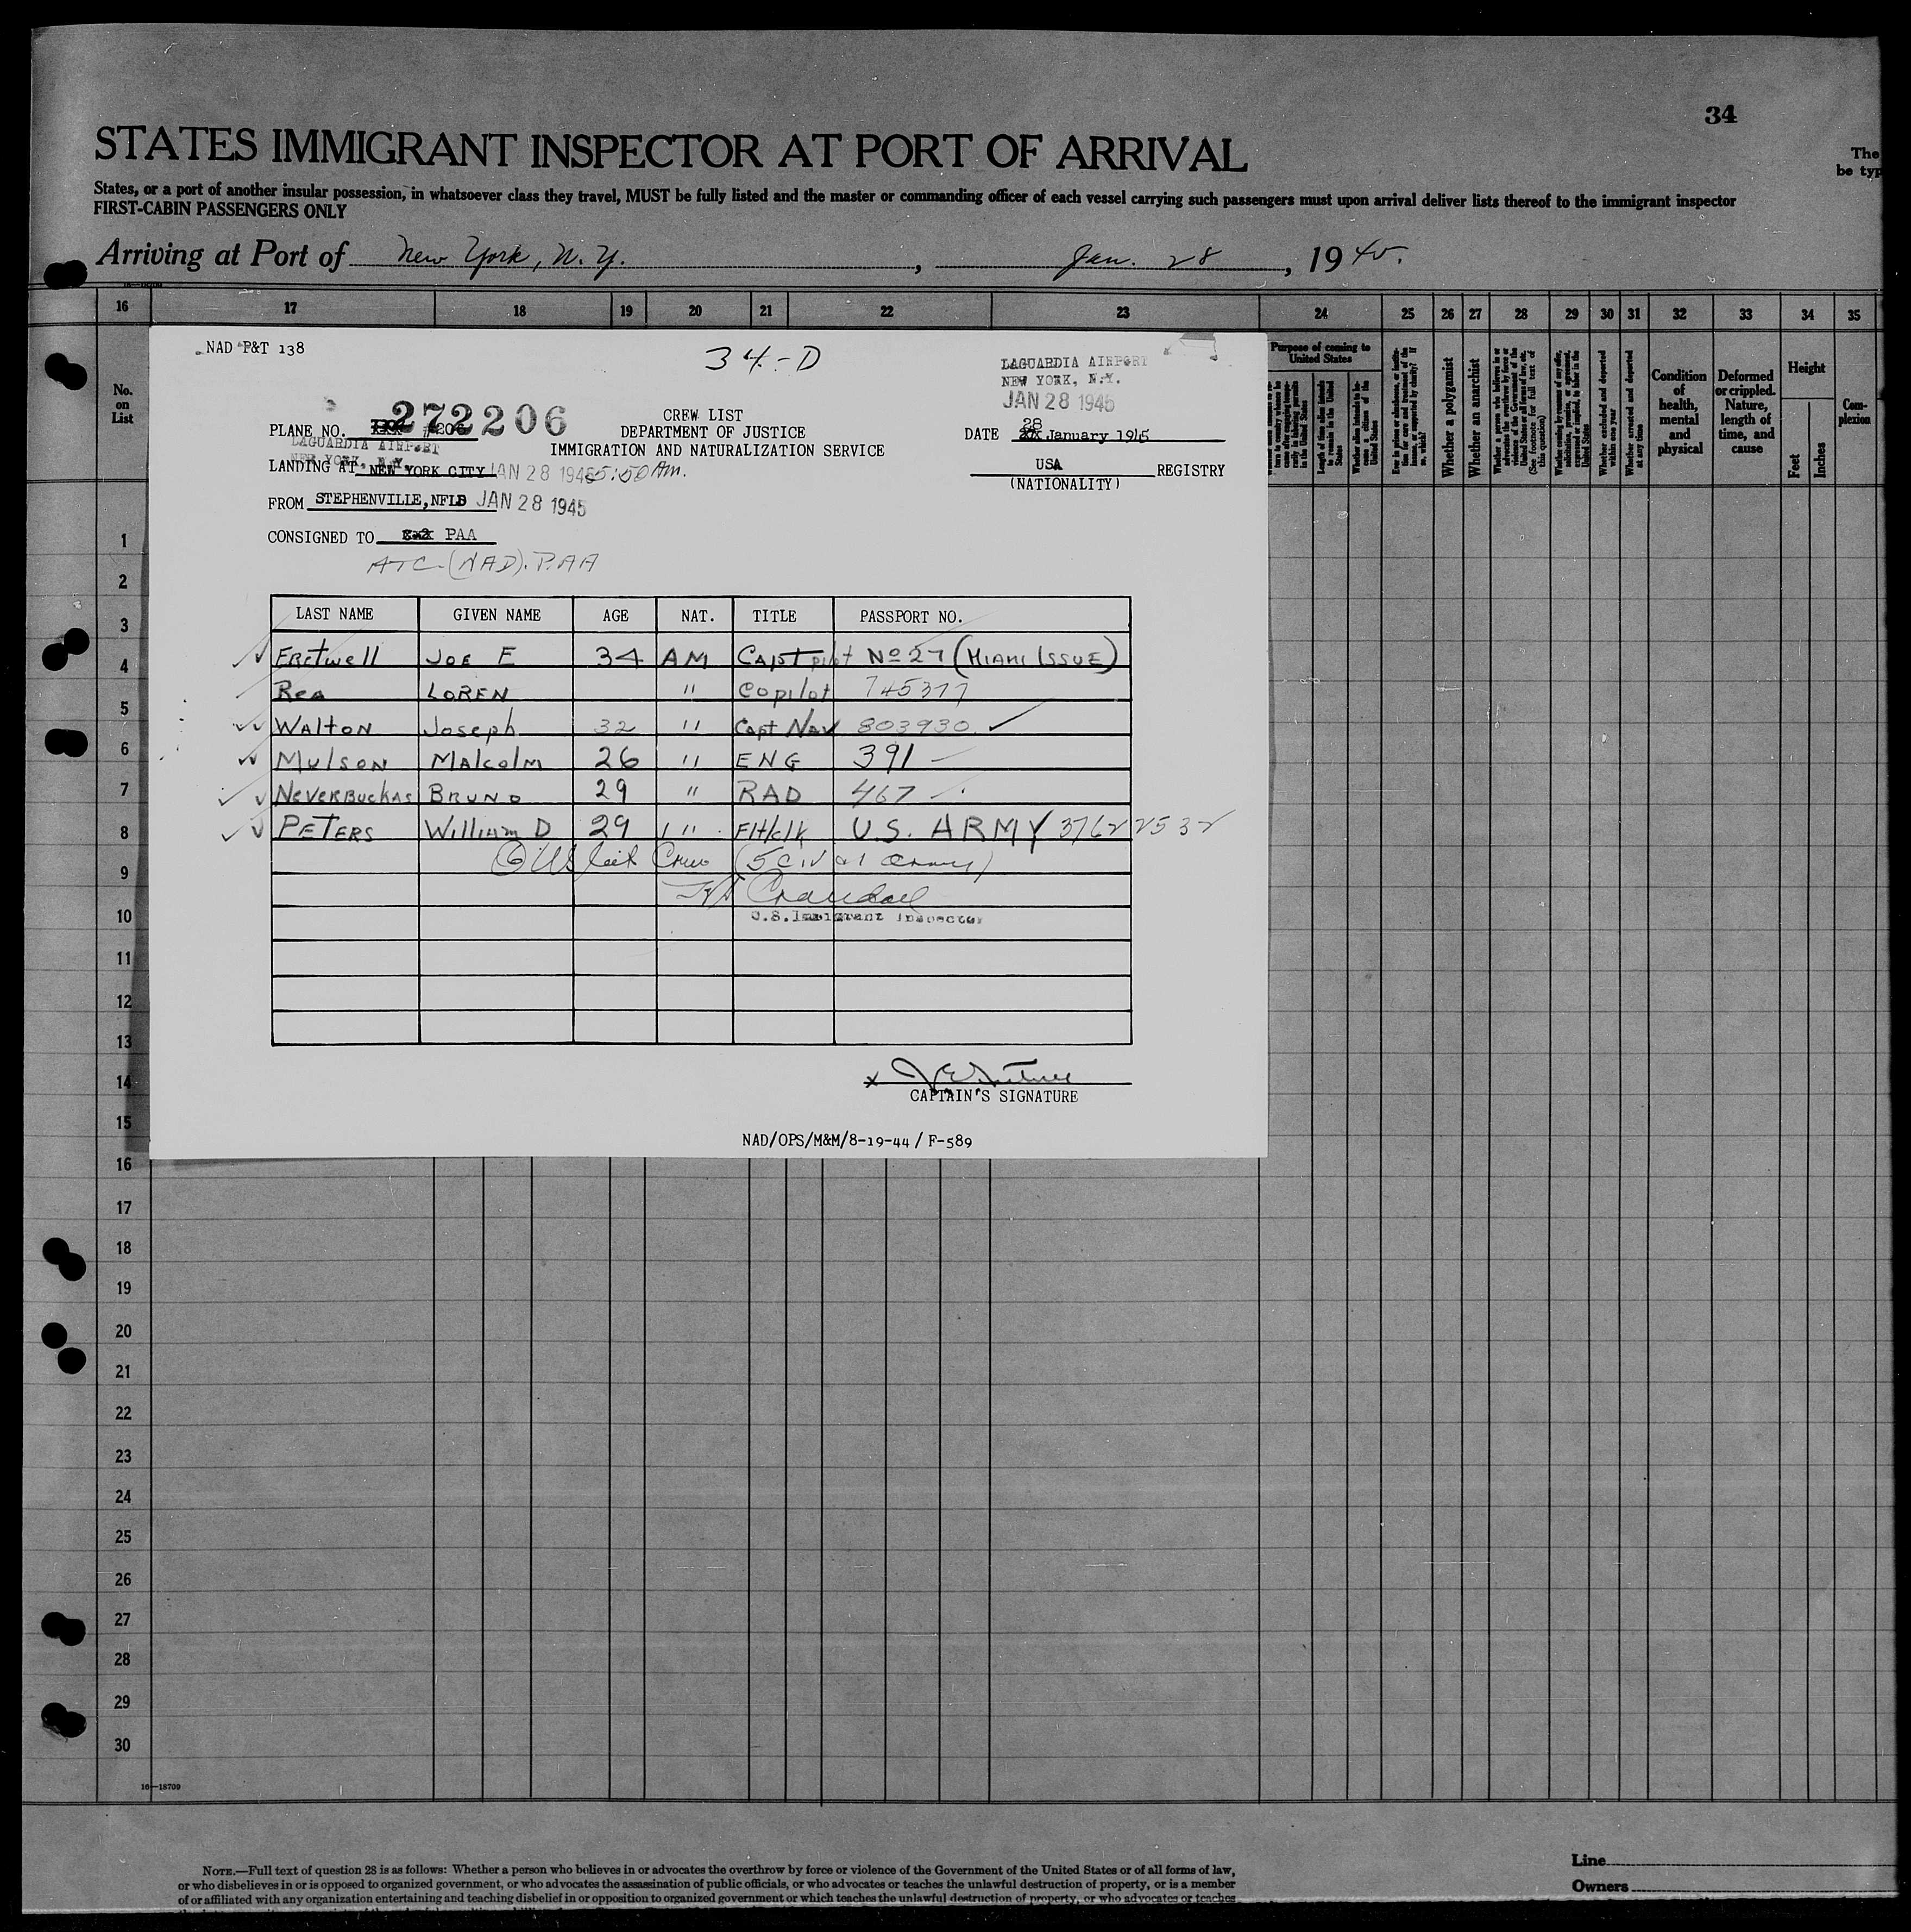 34
STATES IMMIGRANT INSPECTOR AT PORT OF ARRIVAL
The
be typ
States, or a port of another insular possession, in whatsoever class they travel, MUST be fully listed and the master or commanding officer of each vessel carrying such passengers must upon arrival deliver lists thereof to the immigrant inspector
FIRST-CABIN PASSENGERS ONLY
Arriving at Port of New York, N.Y. , Jan. 28 , 1945.
16 17 18 19 20 21 22 23 24 25 26 27 28 29 30 31 32 33 34 35
No. on List
Purpose of coming to United States
Length of time alien intends to remain in the United States
Whether a polygamist
Whether an anarchist
(See footnote for full text of this question)
Whether excluded and deported within one year
Whether arrested and deported at any time
Condition of health, mental and physical
Deformed or crippled. Nature, length of time, and cause
Height
Feet
Inches
Com-plexion
NAD P&T 138
34-D
LAGUARDIA AIRPORT
NEW YORK, N.Y.
JAN 28 1945
272206
CREW LIST
PLANE NO. #206
DEPARTMENT OF JUSTICE
DATE 28 January 1945
LAGUARDIA AIRPORT
NEW YORK, N.Y.
IMMIGRATION AND NATURALIZATION SERVICE
LANDING AT NEW YORK CITY JAN 28 1945 5:50 AM.
USA REGISTRY
(NATIONALITY)
FROM STEPHENVILLE, NFLD JAN 28 1945
CONSIGNED TO PAA
ATC-(NAD). PAA
LAST NAME GIVEN NAME AGE NAT. TITLE PASSPORT NO.
Fretwell JOE E 34 AM CAPT pilot No 27 (MIAMI ISSUE)
Rea LOREN " Copilot 745377
WALTON Joseph 32 " Capt Nav 803930
MULSON MALCOLM 26 " ENG 391
NEVERBUCKAS BRUNO 29 " RAD 467
PETERS William D 29 " Flt/clk U.S. ARMY 37622532
6 US Cit Crew (5 civ & 1 army)
Crandall
U.S. Immigrant Inspector
x
CAPTAIN'S SIGNATURE
NAD/OPS/M&M/8-19-44 / F-589
1
2
3
4
5
6
7
8
9
10
11
12
13
14
15
16
17
18
19
20
21
22
23
24
25
26
27
28
29
30
16—18709
NOTE.—Full text of question 28 is as follows: Whether a person who believes in or advocates the overthrow by force or violence of the Government of the United States or of all forms of law,
or who disbelieves in or is opposed to organized government, or who advocates the assassination of public officials, or who advocates or teaches the unlawful destruction of property, or is a member
of or affiliated with any organization entertaining and teaching disbelief in or opposition to organized government or which teaches the unlawful destruction of property, or who advocates or teaches
Line
Owners